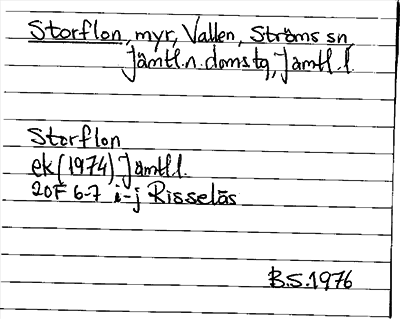 Storflon, myr, Vallen, Ströms sn,
Jämtl.n.domstg, Jämtl.l.
Storflon
ek (1974) Jämtl.l.
20F 6-7 i-j Risselås
B.S.1976